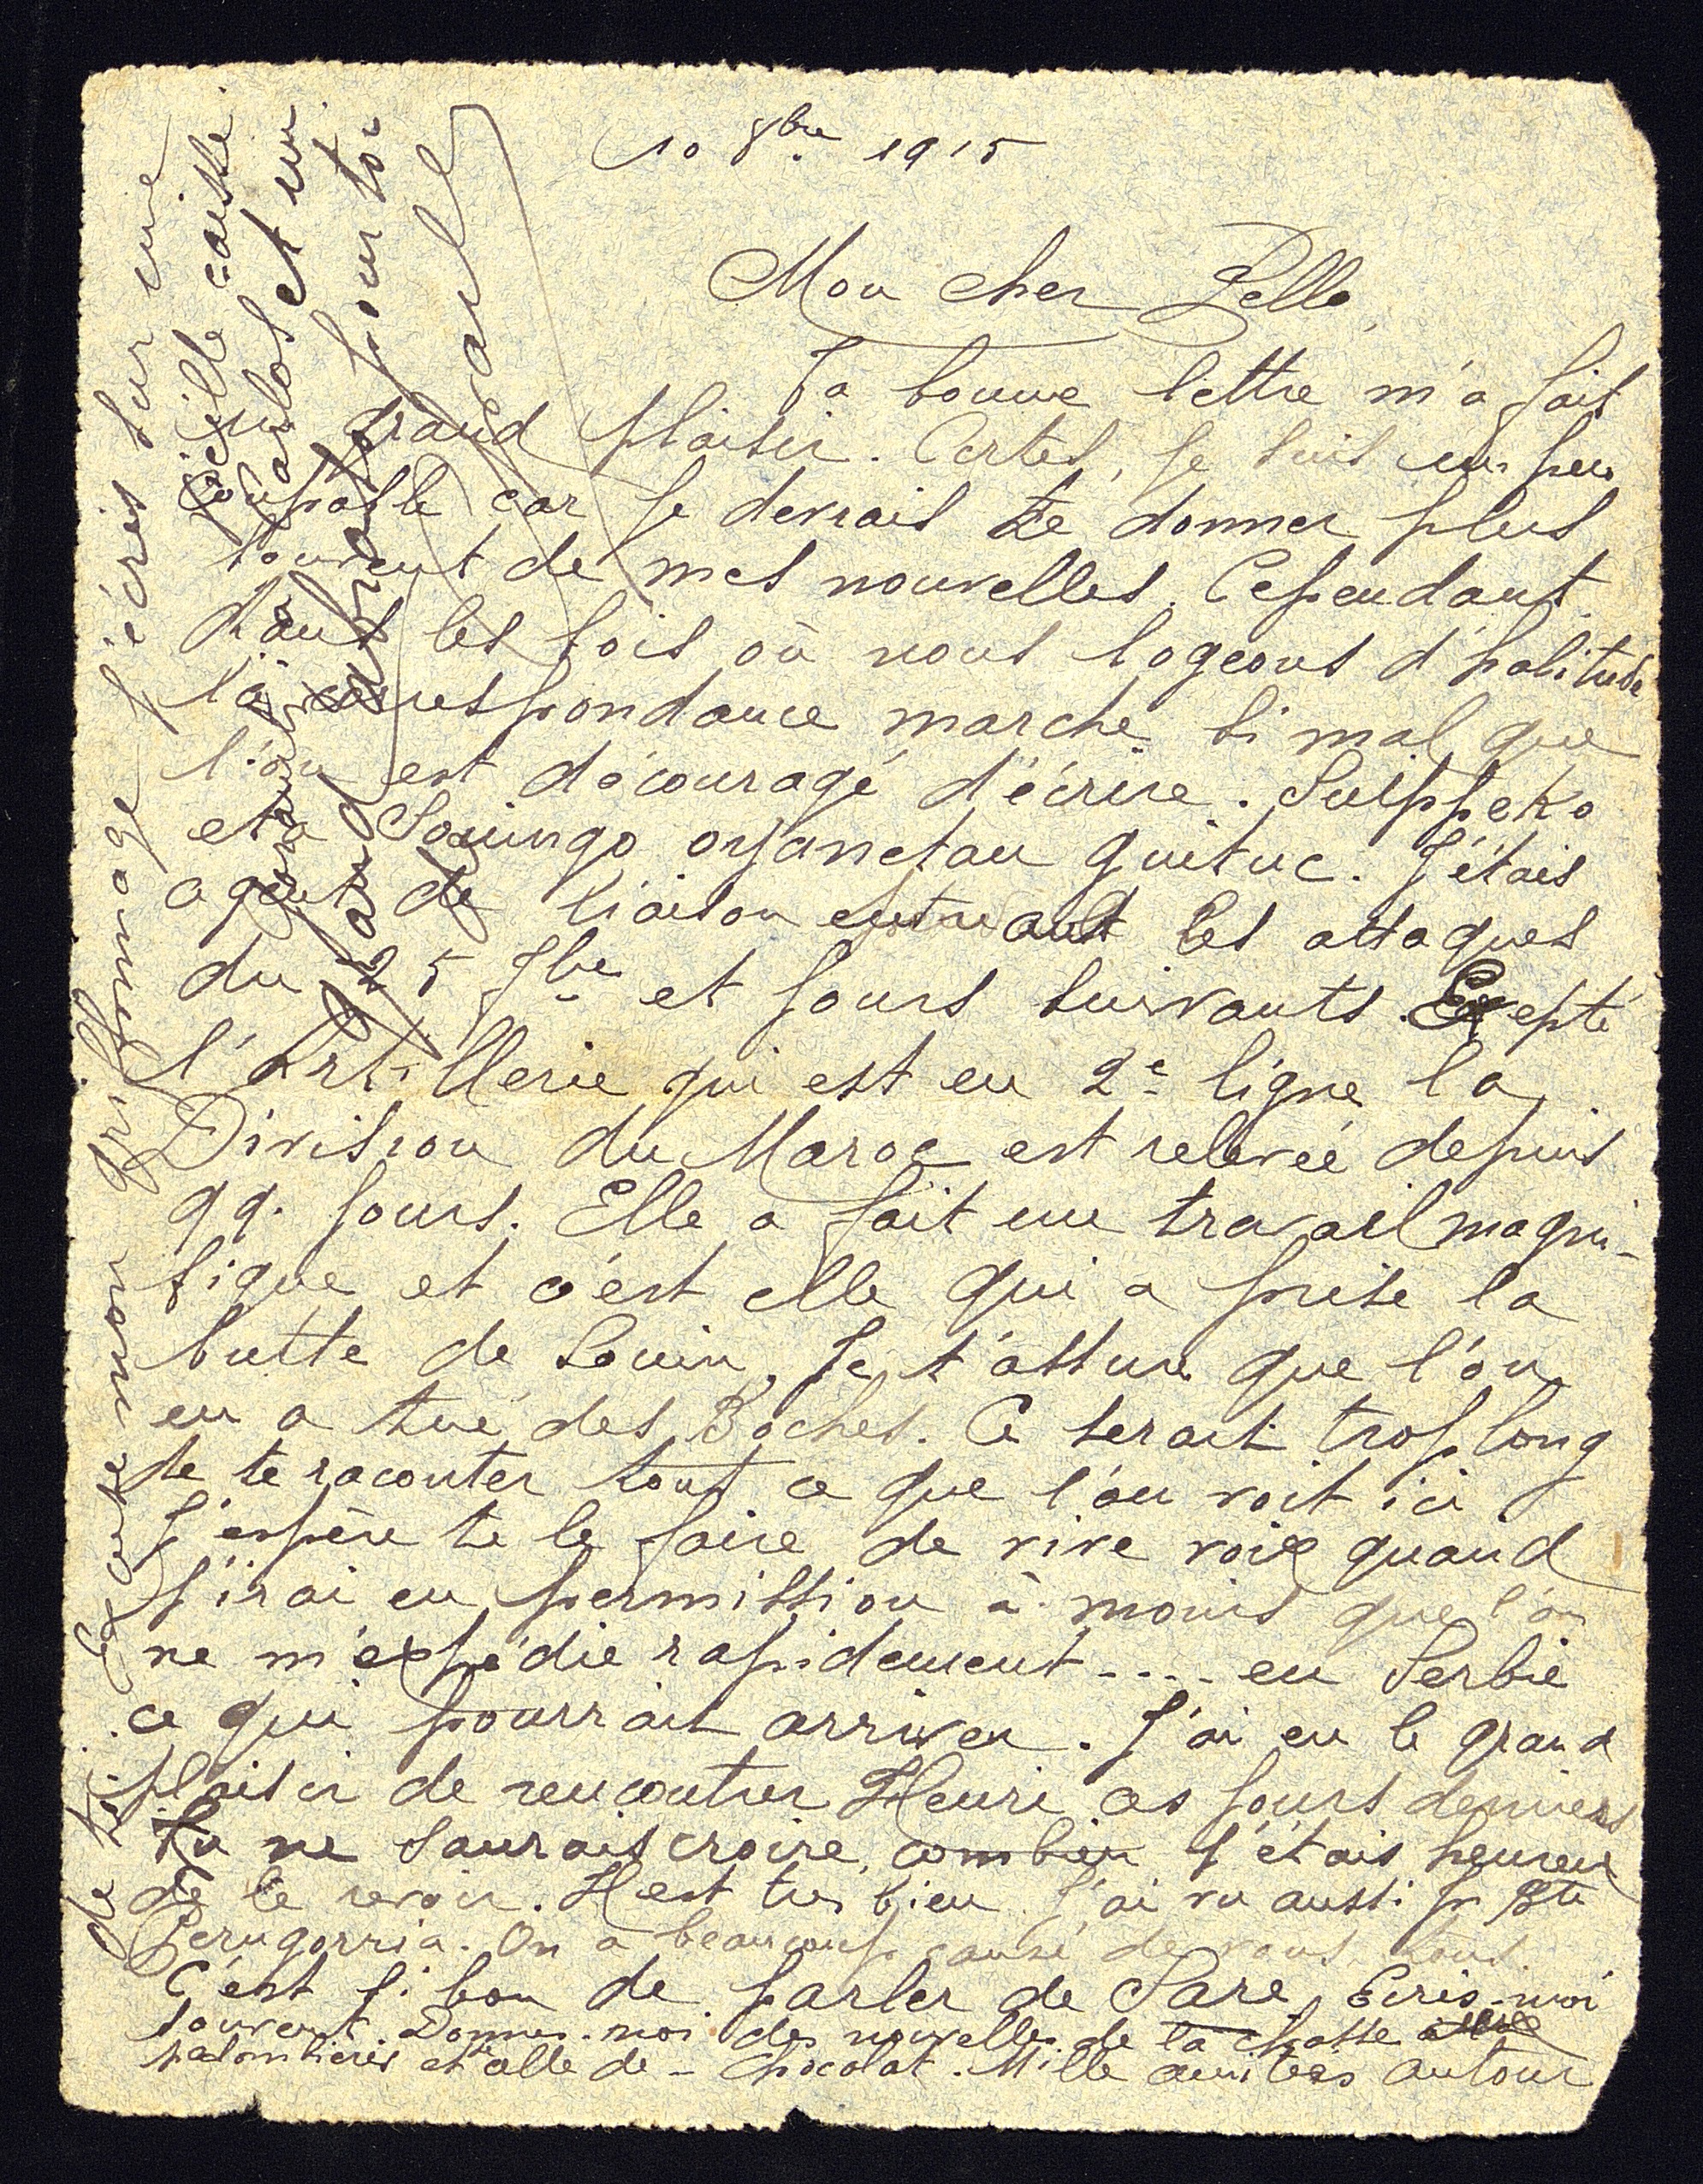 10 8bre 1915
Mon cher Pello,
Ta bonne lettre m'a fait
un grand plaisir. Certes, je suis un peu
coupable car je devrais te donner plus
souvent de mes nouvelles. Cependant
dans les bois où nous logeons d'habitude
la correspondance marche si mal que
l'on est découragé d'écrire. Suippeko
eta Souingo oyanetan guituc. J'étais
agent de liaison durant les attaques
du 25 7bre et jours suivants. Excepté
l'Artillerie qui est en 2e ligne la
Division du Maroc est relevée depuis
qq. jours. Elle a fait un travail magni-
fique et c'est elle qui a prise la
butte de Souin. Je t'assure que l'on
en a tué des Boches. Ce serait trop long
de te raconter tout ce que l'on voit ici
J'espère te le faire de vive voix quand
j'irai en permission à moins que l'on
ne m'expédie rapidement .... en Serbie
ce qui pourrait arriver. J'ai eu le grand
plaisir de rencontrer Henri ces jours derniers
Tu ne saurais croire combien j'étais heureux
de le revoir. Il est très bien. J'ai vu aussi
Perugorria. On a beaucoup causé de vous tous.
C'est si bon de parler de Sare. Ecris-moi
souvent. Donnes-moi des nouvelles de la chasse
palombières et celle de - Chocolat. Mille amitiés autour
de toi. Excuse mon griffonnage j'écris sur une
vieille caisse
Carlos et un
pour toi
Paul